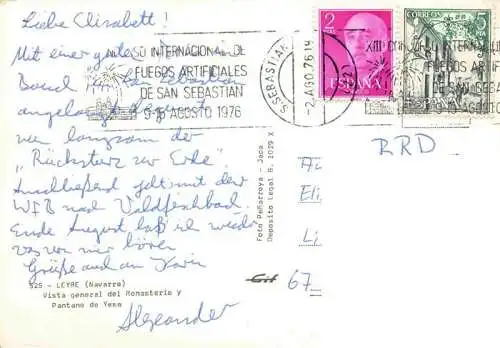 Liebe Elisabett!
Mit einer guten
XIII CONCURSO INTERNACIONAL DE
FUEGOS ARTIFICIALES
DE SAN SEBASTIAN
9-16 AGOSTO 1976
S. SEBASTIAN
-2. AGO. 76
2
PTAS
ESPAÑA
CORREOS
5
PTAS
ESPAÑA
angelangt
nun langsam der
"Rücksturz zur Erde".
Anschließend geht's mit dem
WfB nach Waldfischbach.
Ende August laß ich wieder
was von mir hören
Grüße auch an Karin
Alexander
525 - LEYRE (Navarra)
Vista general del Monasterio y
Pantano de Yesa
Foto Peñarroya - Jaca
Depósito Legal B. 1029 X
BRD
Eli
Li
67